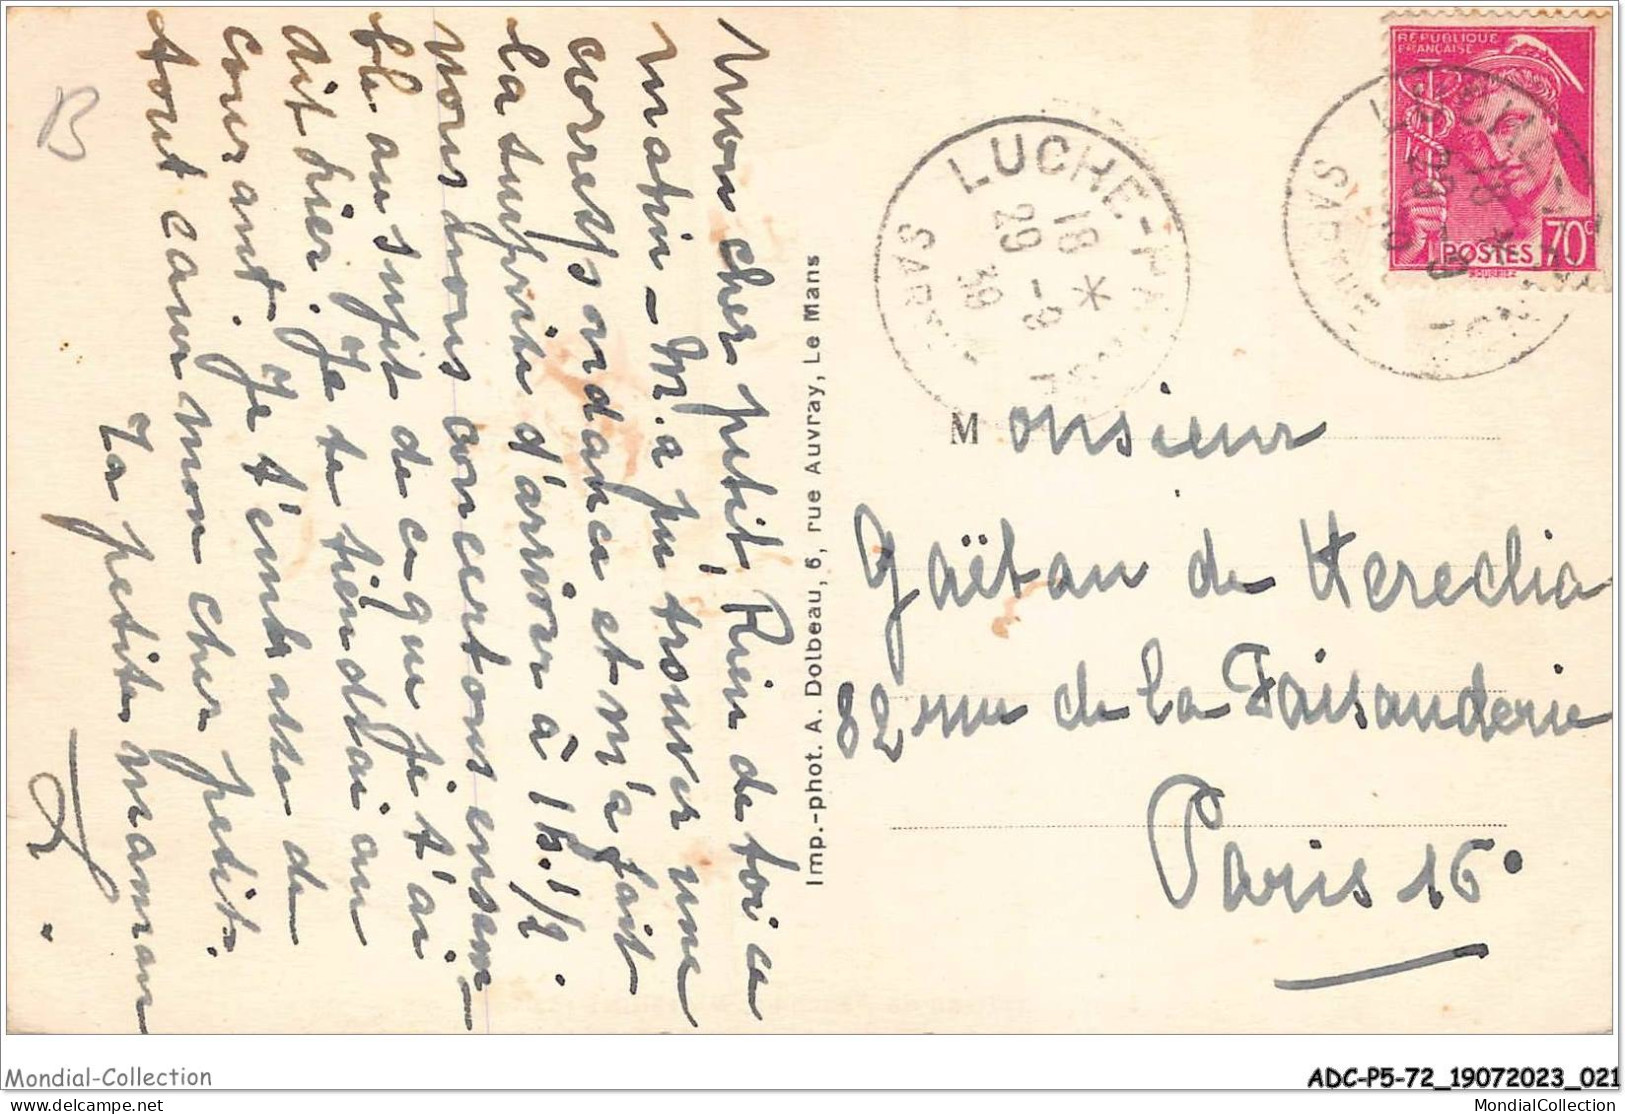 Mon cher petit, Rien de toi ce
matin - M. a pu trouver une
correspondance et m'a fait
la surprise d'arriver à 1h.1/2.
Nous nous concertons ensem-
ble au sujet de ce que je t'ai
dit hier. Je te tiendrai au
courant. Je t'embrasse de
tout cœur mon cher petit.
Ta petite maman
B
Imp.-phot. A. Dolbeau, 6, rue Auvray, Le Mans
RÉPUBLIQUE
FRANÇAISE
POSTES 70c
LUCHE-PR
18 *
29 -8
39
SARTHE
Monsieur
Gaëtan de Heredia
82 rue de la Faisanderie
Paris 16°
Mondial-Collection
ADC-P5-72_19072023_021
www.delcampe.net
MondialCollection